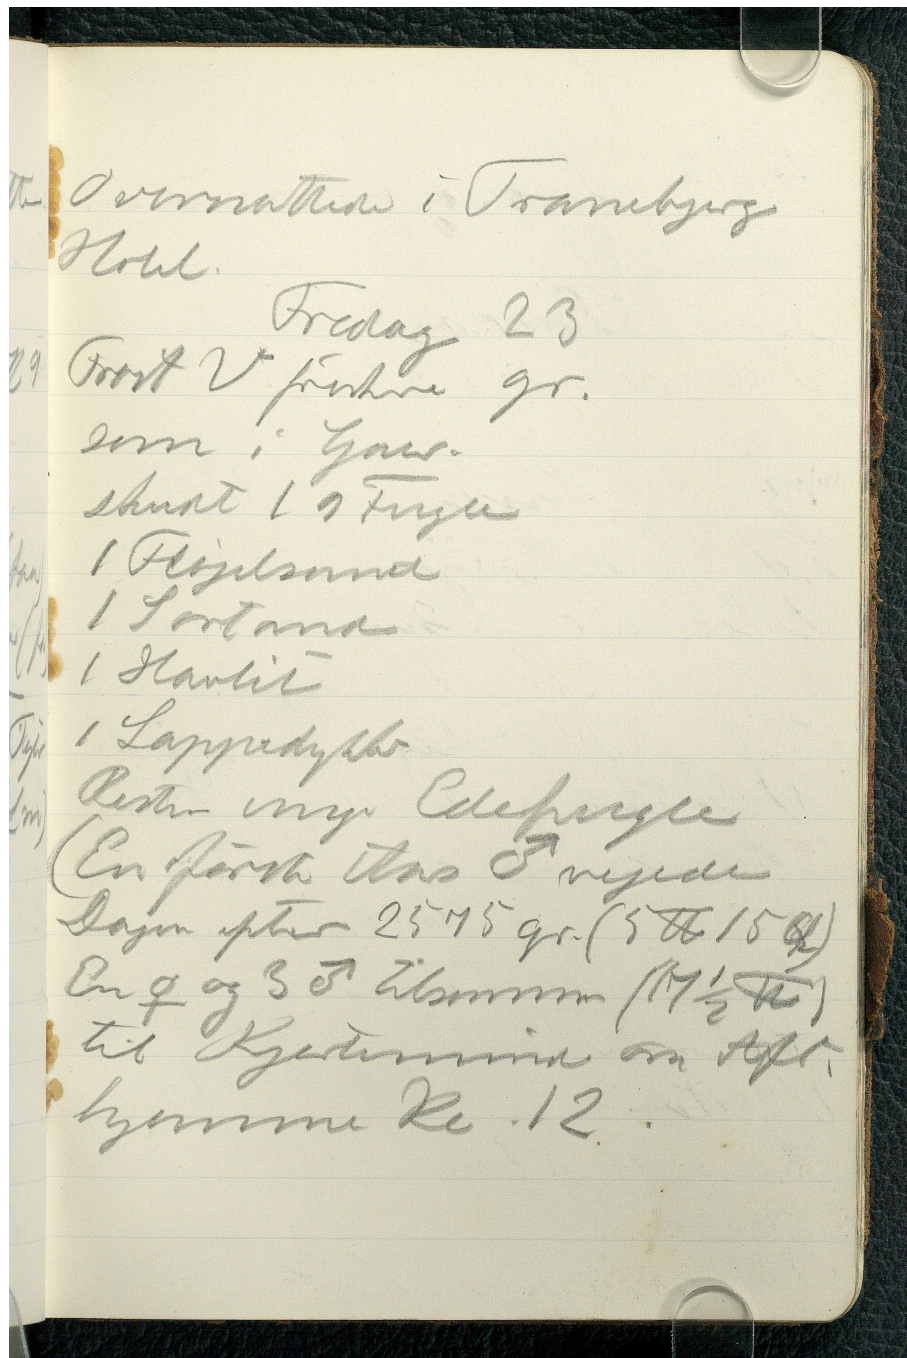 Overnattede i Tranebjerg
Hotel.
Fredag 23
Frost V friskere gr.
som i Gaar.
skudt 19 Fugle
1 Fløjelsand
1 Sortand
1 Havlit
1 Lappedykker
Resten unge Edefugle
(En første Aars ♂ vejede
Dagen efter 2575 gr. (5 ℔ 15 )
En ♀ og 3 ♂ tilsammen (17 ½ ℔)
til Kjerteminde om Aft.
hjemme Kl. 12.